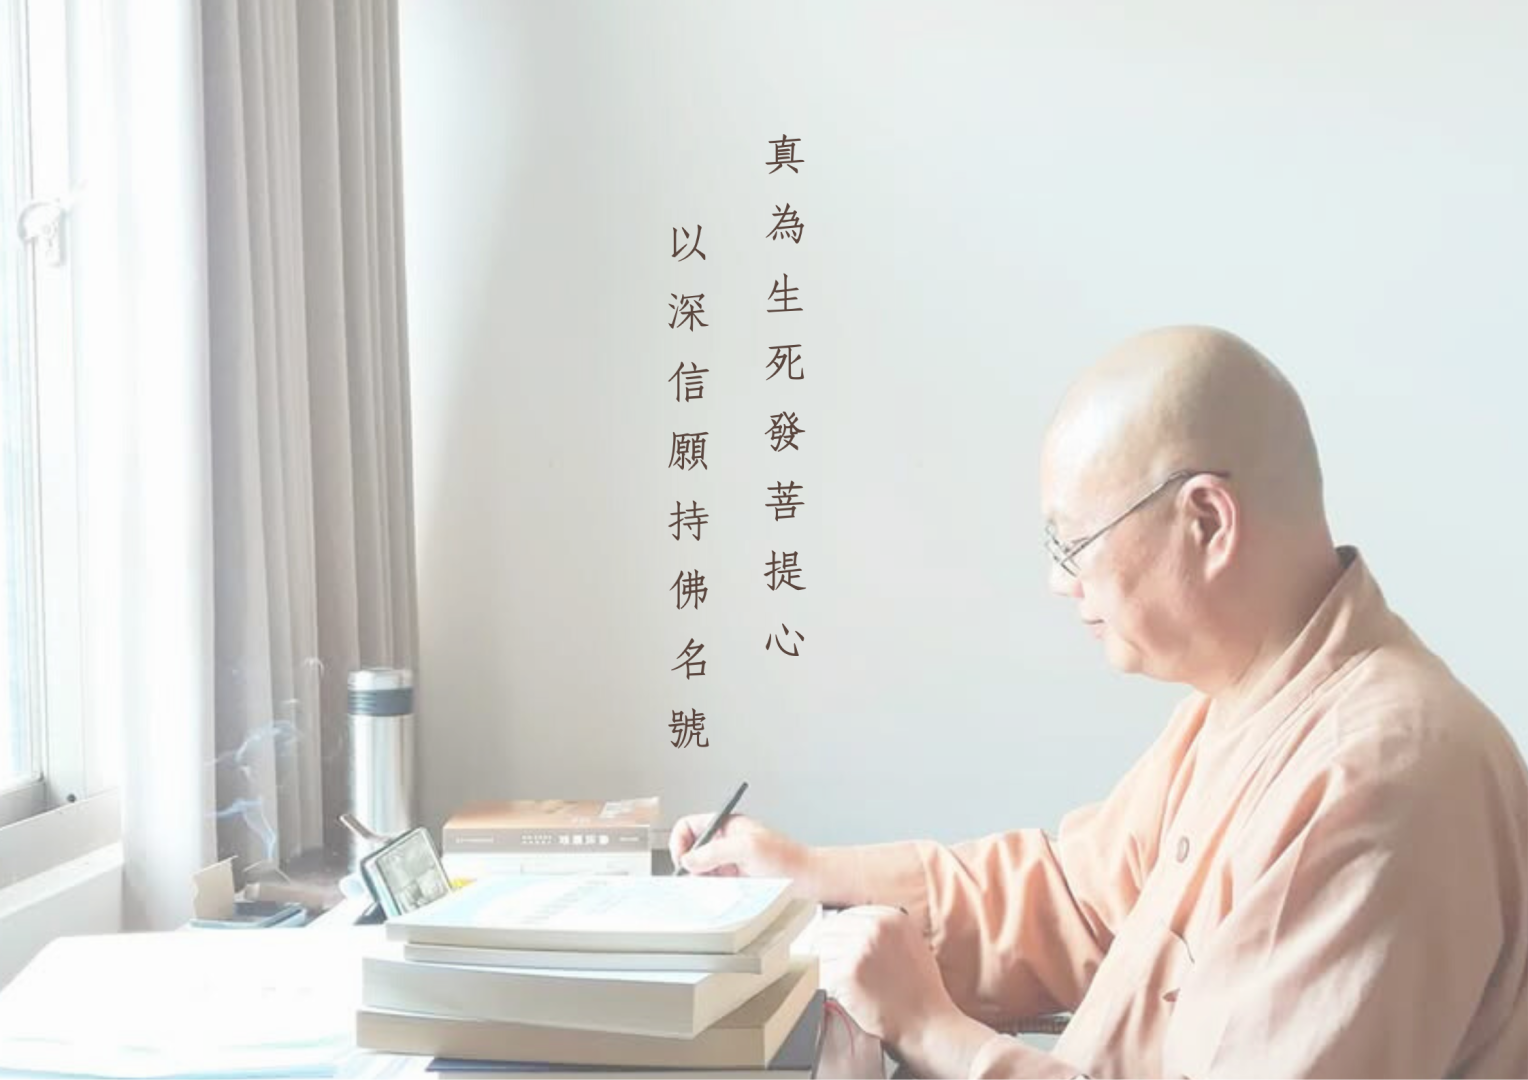 真為生死發菩提心
以深信願持佛名號